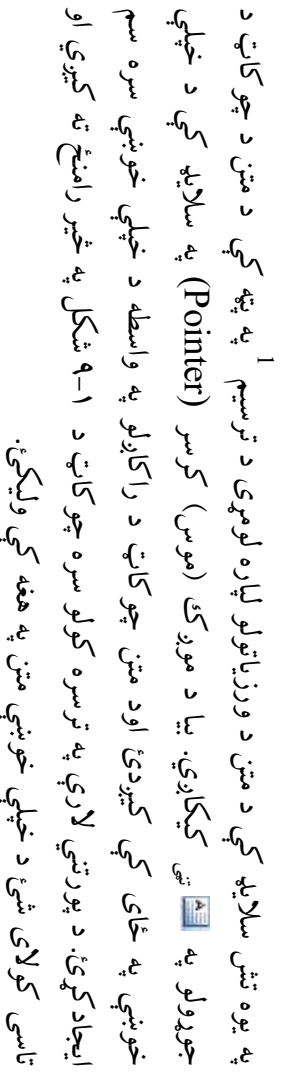 په يوه تش سلايډ کې د متن د ورزياتولو لپاره لومړی د ترسيم 1 په پټه کې د متن د چوکاټ د
جوړولو په تڼۍ کيکاږي. بيا د موږک (موس) کرسر (Pointer) په سلايډ کې د خپلې
خوښې په ځای کې کيږدئ اود متن چوکاټ د راکاږلو په واسطه د خپلې خوښې سره سم
ايجاد کړئ. د پورتنۍ لارې په ترسره کولو سره چوکاټ د ۱–۹ شکل په څير رامنځ ته کيږي او
تاسې کولای شئ د خپلې خوښې متن په هغه کې وليکئ.